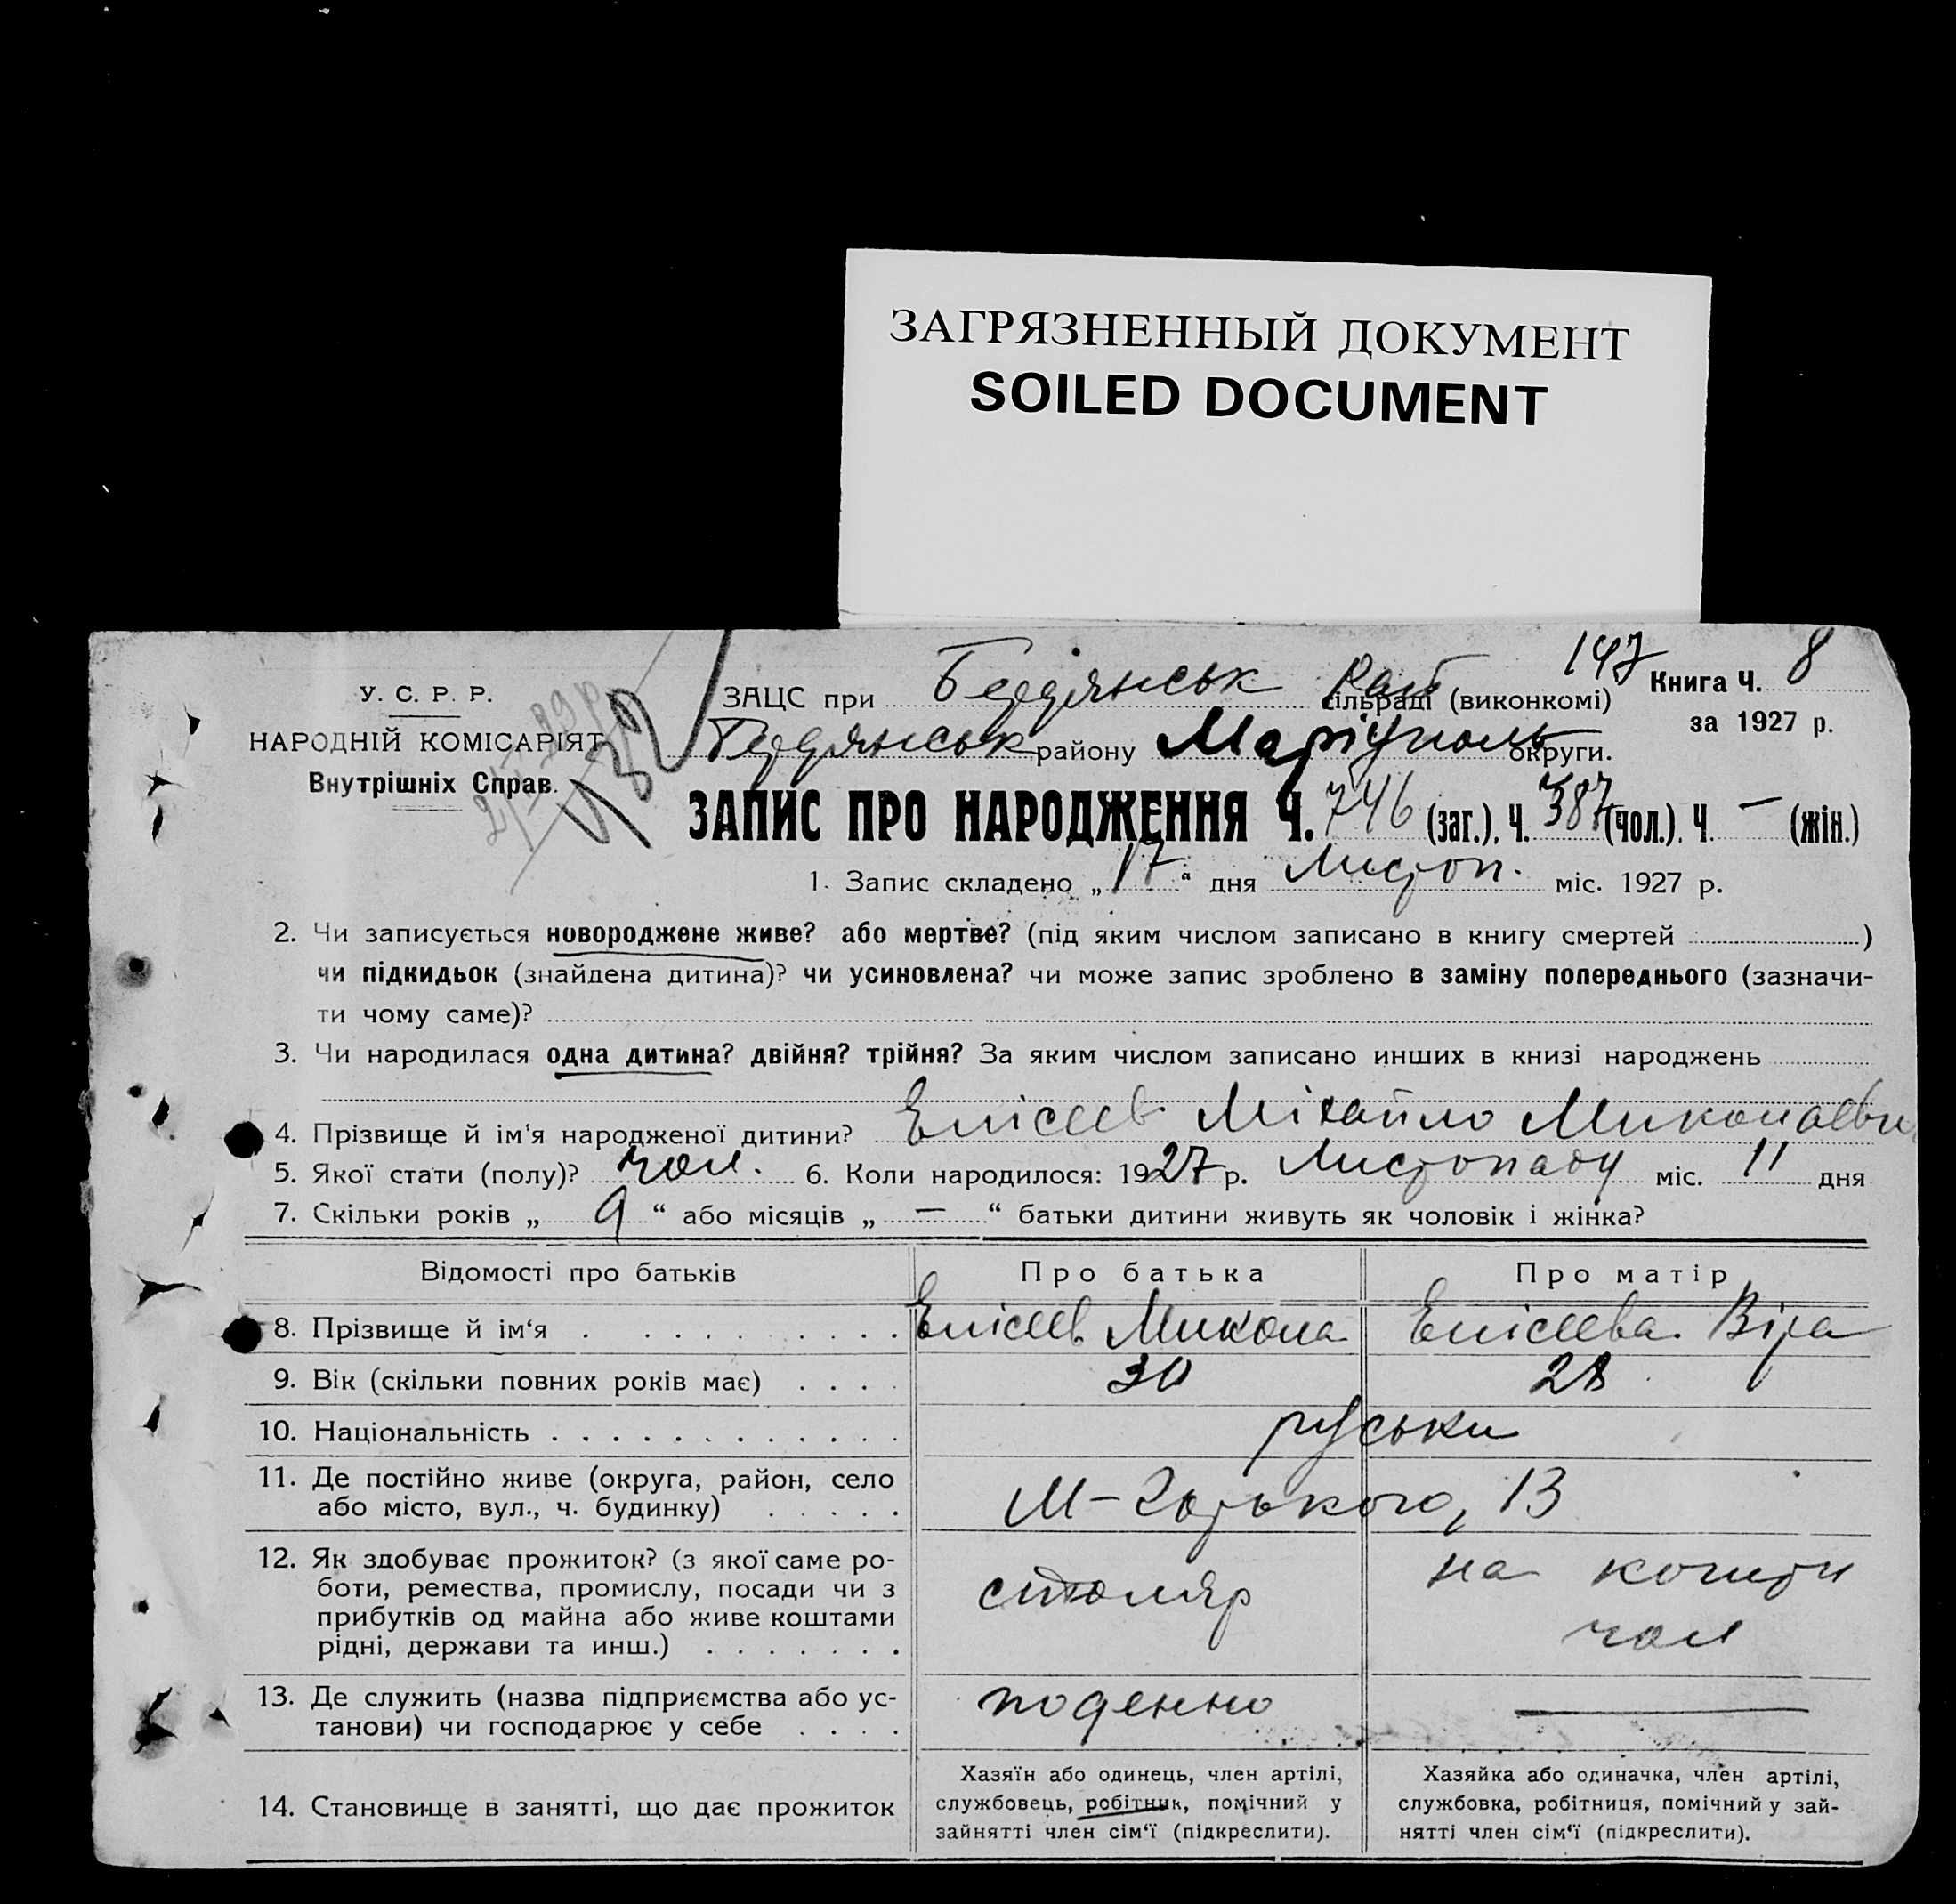 ЗАГРЯЗНЕННЫЙ ДОКУМЕНТ
SOILED DOCUMENT
147
У. С. Р. Р.
НАРОДНІЙ КОМІСАРІЯТ
Внутрішніх Справ.
ЗАЦС при Бердянськ Рай сільраді (виконкомі)
Книга Ч. 8
за 1927 р.
Бердянськ району Маріуполь округи.
ЗАПИС ПРО НАРОДЖЕННЯ Ч. 746 (заг.), Ч. 387 (чол.), Ч. — (жін.)
1. Запис складено „17“ дня Листоп. міс. 1927 р.
2. Чи записується новороджене живе? або мертве? (під яким числом записано в книгу смертей )
чи підкидьок (знайдена дитина)? чи усиновлена? чи може запис зроблено в заміну попереднього (зазначи-
ти чому саме)?
3. Чи народилася одна дитина? двійня? трійня? За яким числом записано инших в книзі народжень
4. Прізвище й ім'я народженої дитини? Елісеев Міхайло Миколаеви
5. Якої стати (полу)? чол. 6. Коли народилося: 1927 р. Листопаду міс. 11 дня
7. Скільки років „ 9 “ або місяців „ — “ батьки дитини живуть як чоловік і жінка?
Відомості про батьків Про батька Про матір
8. Прізвище й ім'я Елісеев Микола Елісеева Віра
9. Вік (скільки повних років має) 30 28
10. Національність руськи
11. Де постійно живе (округа, район, село
або місто, вул., ч. будинку) М-Горького, 13
12. Як здобуває прожиток? (з якої саме ро-
боти, ремества, промислу, посади чи з
прибутків од майна або живе коштами
рідні, держави та инш.)
столяр
на кошти
чол
13. Де служить (назва підприємства або ус-
танови) чи господарює у себе
поденно —
14. Становище в занятті, що дає прожиток
Хазяїн або одинець, член артілі,
службовець, робітник, помічний у
зайнятті член сім'ї (підкреслити).
Хазяйка або одиначка, член артілі,
службовка, робітниця, помічний у зай-
нятті член сім'ї (підкреслити).